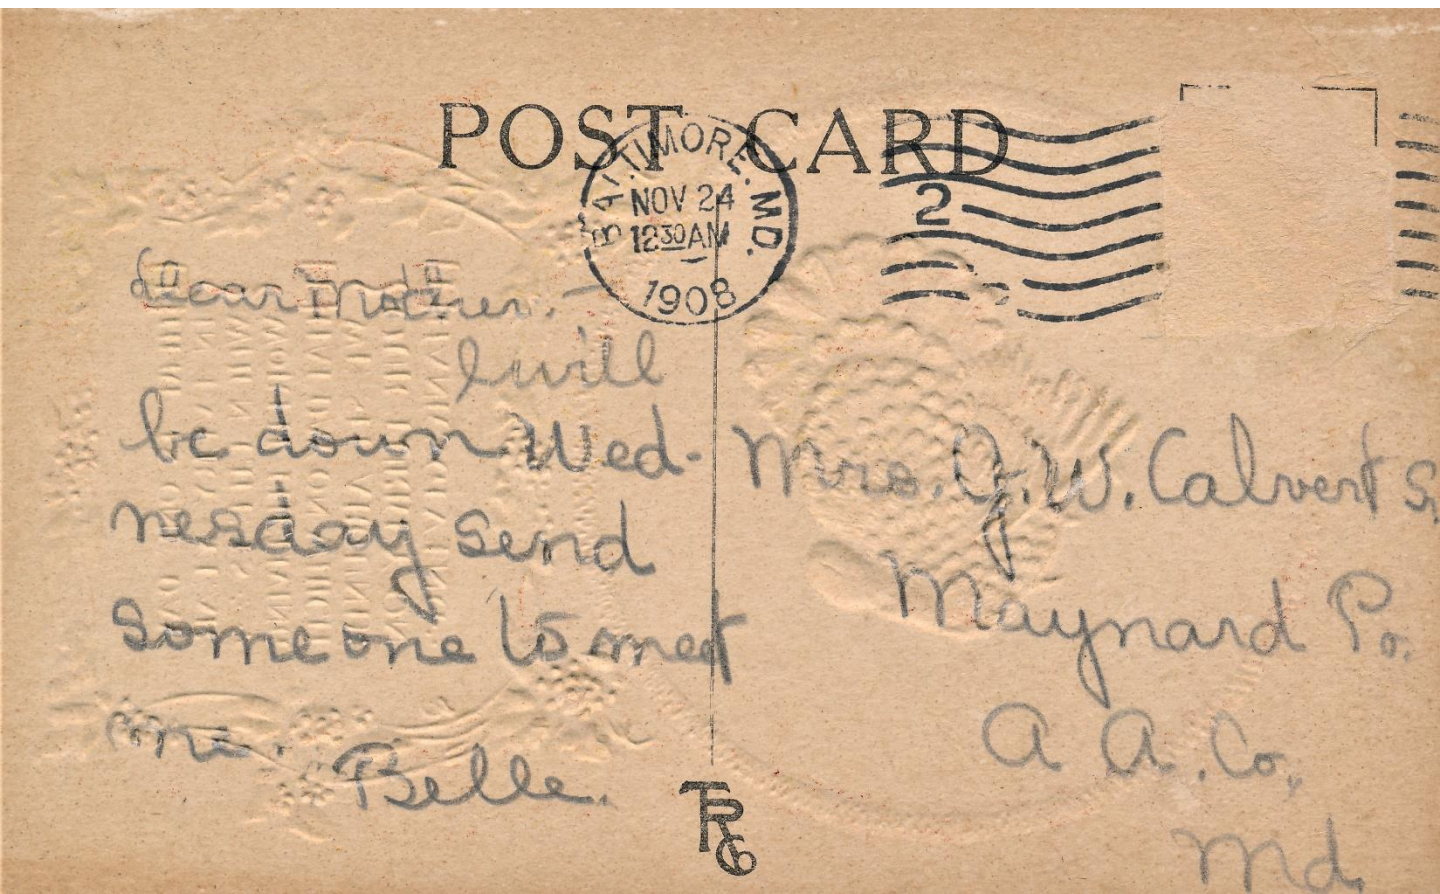 POST CARD
BALTIMORE. MD.
NOV 24
12 30 AM
1908
2
Dear Mother. —
I will
be down Wed-
nesday send
someone to meet
me. Belle.
Mrs. J. W. Calvert Sr
Maynard Po.
A A. Co.,
Md.
TRCo